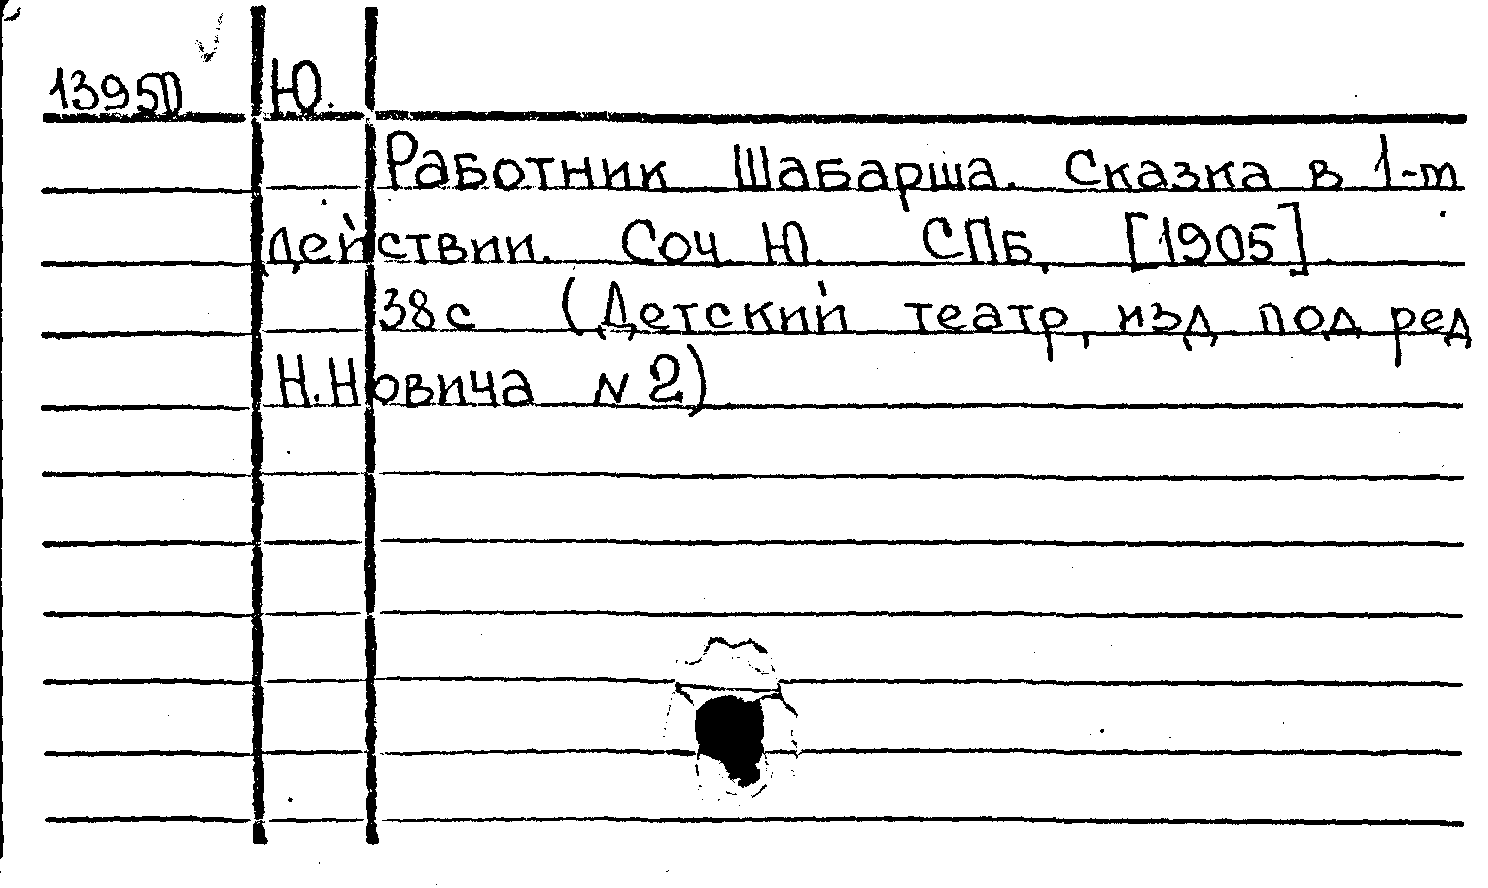 13950 Ю.
Работник Шабарша. Сказка в 1-м
действии. Соч. Ю. СПб, [1905].
38 с (Детский театр, изд под ред
Н.Новича N 2)